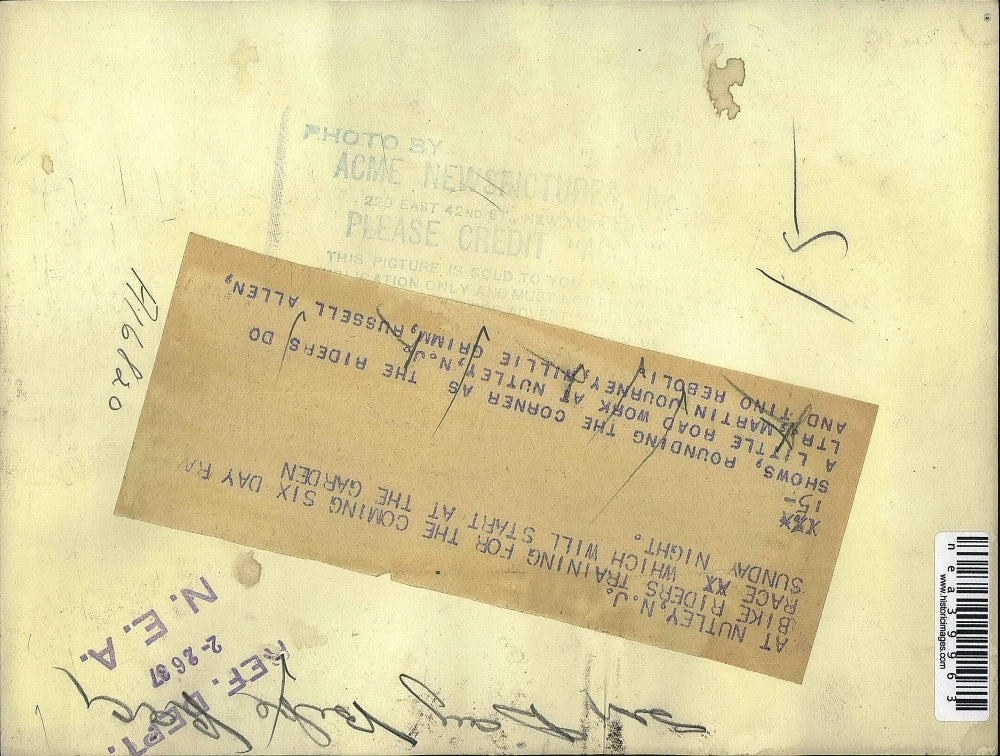 PHOTO BY
ACME NEWSPICTURES, Inc.
220 EAST 42ND ST., NEW YORK
PLEASE CREDIT "ACME"
THIS PICTURE IS SOLD TO YOU FOR
PUBLICATION ONLY AND MUST NOT BE
ADVERTISING
15-
AT NUTLEY, N.J.
BIKE RIDERS TRAINING FOR THE COMING SIX DAY RA
RACE XX WHICH WILL START AT THE GARDEN
SUNDAY NIGHT.
XXX
15-
SHOWS, ROUNDING THE CORNER AS THE RIDERS DO
A LITTLE ROAD WORK AT NUTLEY, N.J.
LTR; MARTIN JOURNEY, WILLIE GRIMM, RUSSELL ALLEN,
AND TINO REBOLI
Day Bike Race
REF. DEPT.
2-26 37
N. E. A.
nea39963
www.historicimages.com